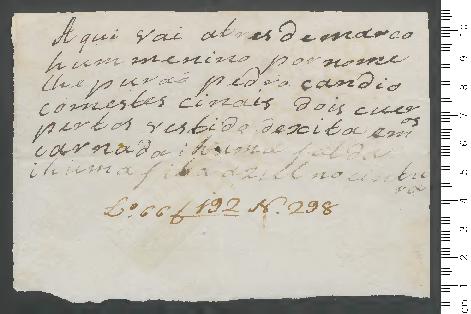 Aqui vai atres de marco
hum menino por nome
lhe puraõ pedro candio
comestes cinais dois cuer
pertos vestido dexita em
carnada i huma falda
i huma fita azull no cintu
ra
Lo. 66 f 192 N. 298